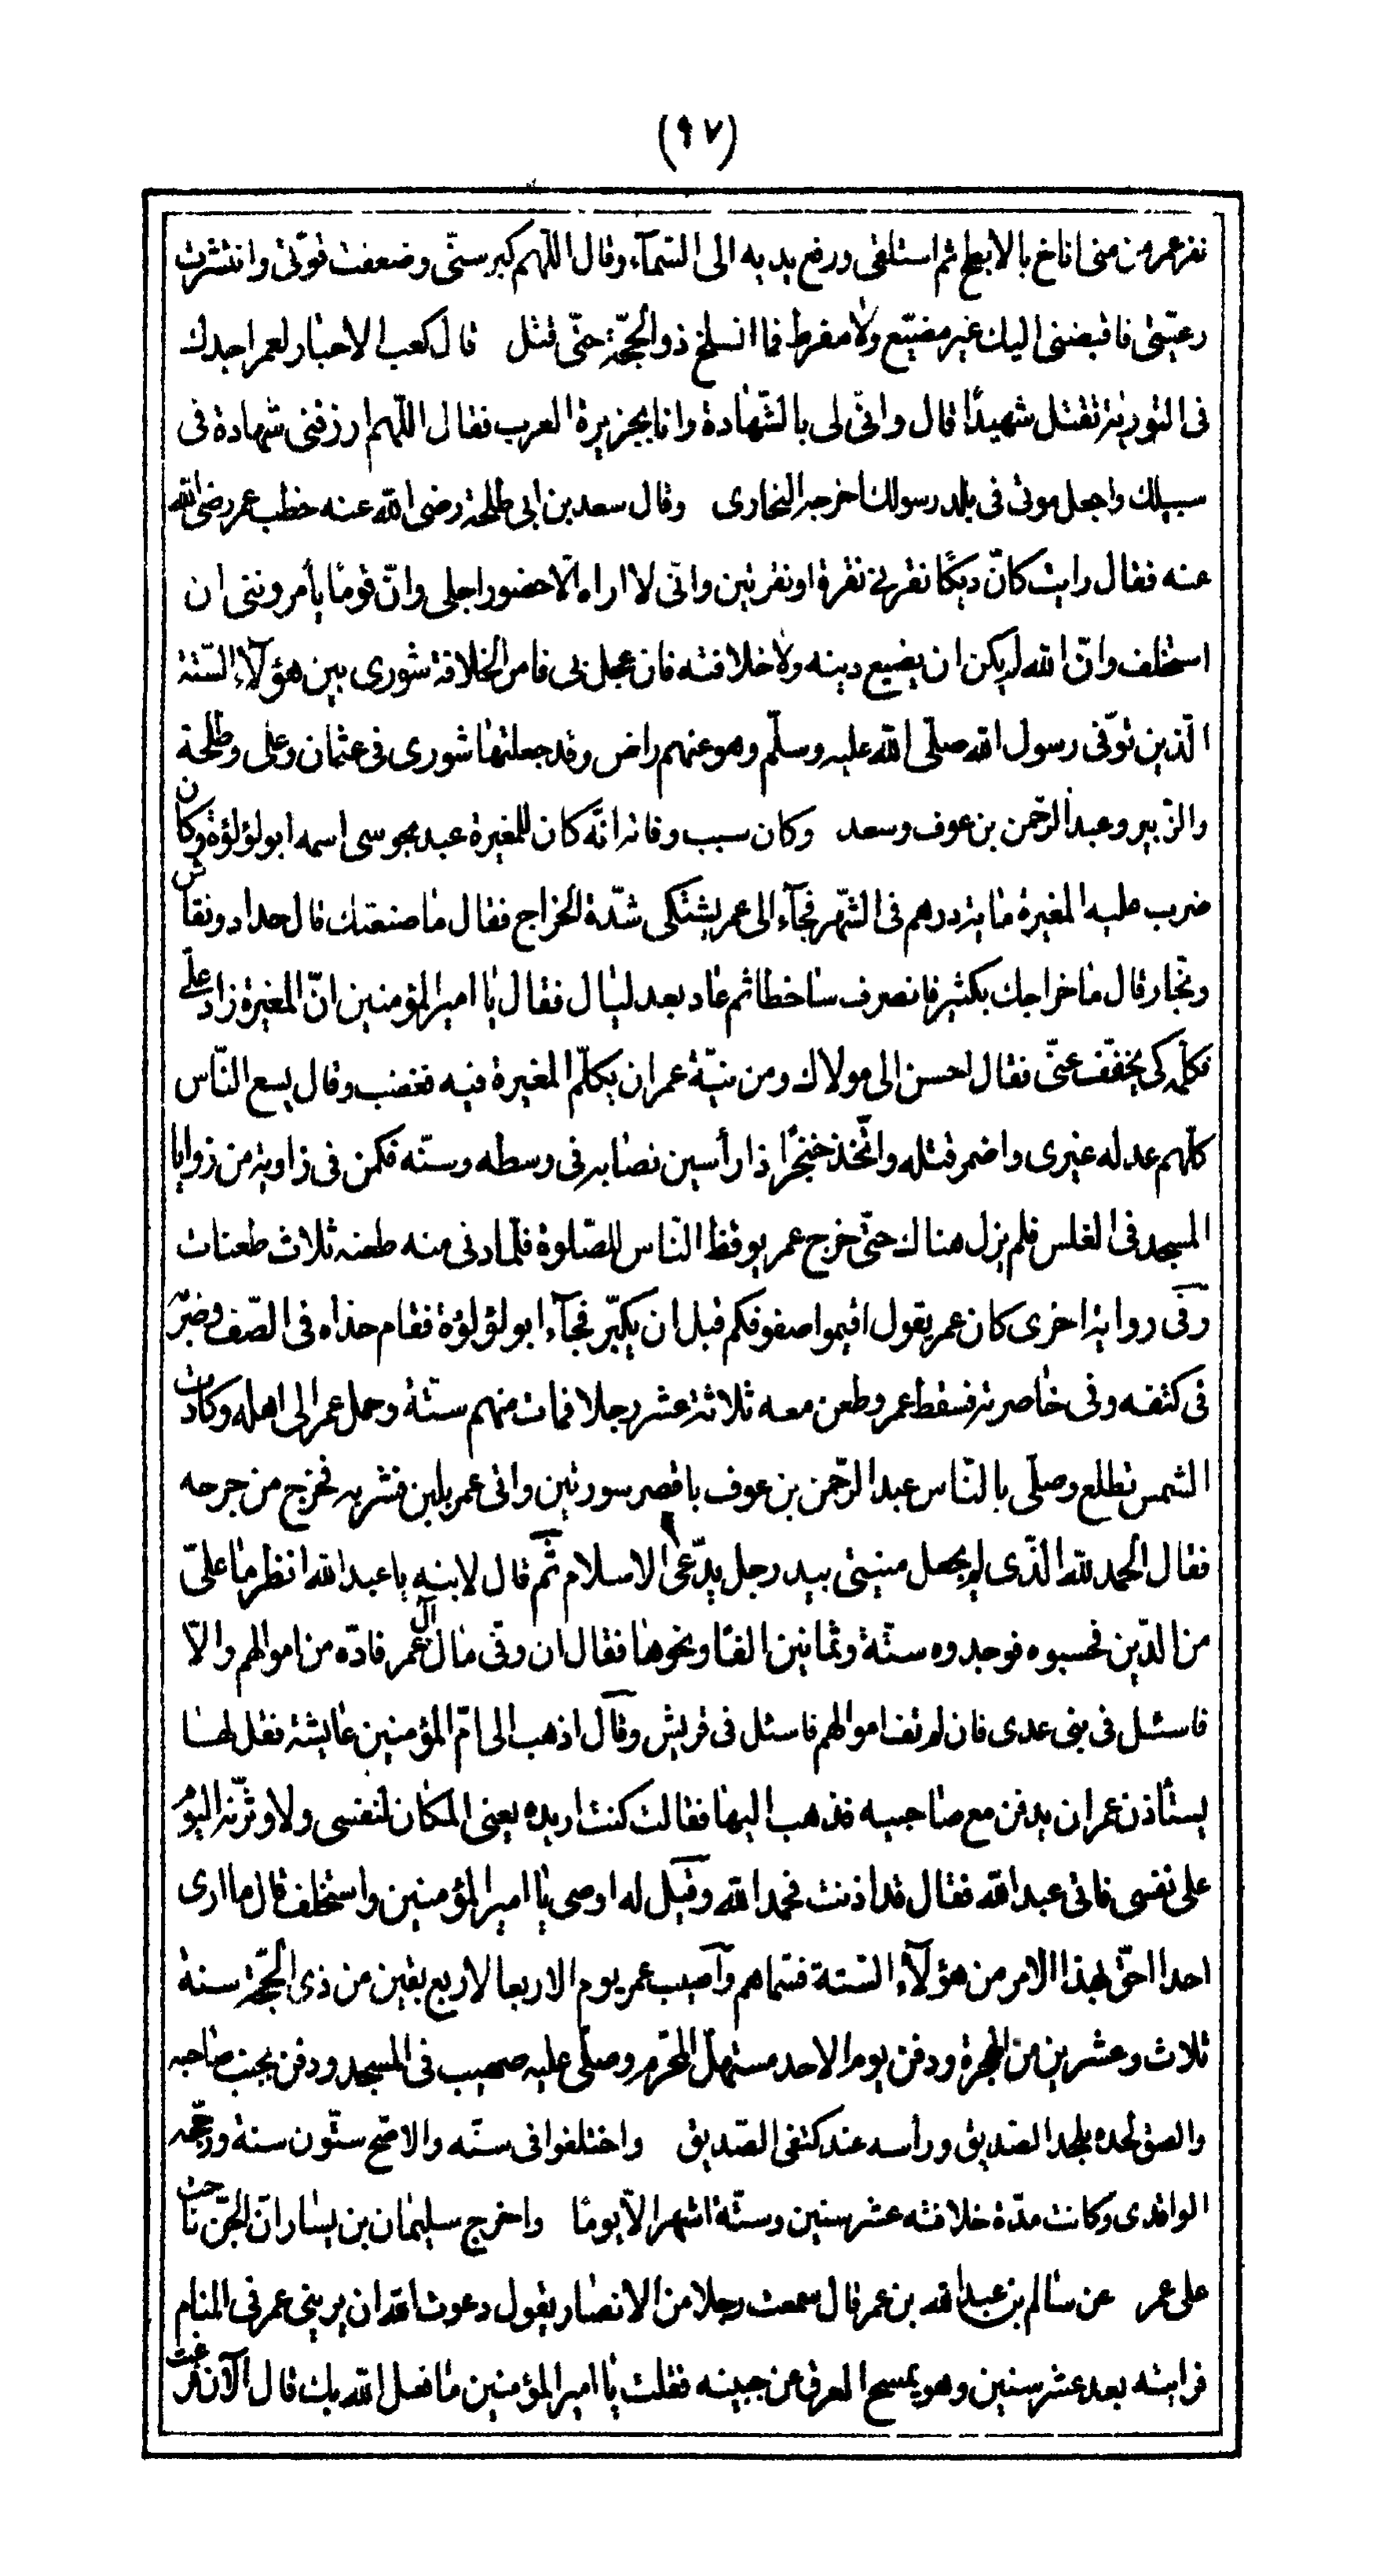 (٩٧)
نفر عمر من منى اناخ بالابطح ثم استلقى ورفع يديه الى السّمآء وقال اللّهم كبر سنّى وضعفت قوّتى وانتشرت
رعيّتى فاقبضنى اليك غير مضيّع ولا مفرط فما انسلخ ذو الحجّة حتّى قتل قال كعب الاحبار لعمر اجدك
فى التورية تقتل شهيدًا قال وانّى لى بالشّهادة وانا بجزيرة العرب فقال اللّهم ارزقنى شهادة فى
سبيلك واجعل موتى فى بلد رسولك اخرجه البخارى وقال سعد بن ابى طلحة رضى الله عنه خطب عمر رضى الله
عنه فقال رايت كانّ ديكًا نقرنى نقرة او نقرتين وانّى لا اراه الّا حضور اجلى وانّ قومًا يأمروننى ان
استخلف وانّ الله لم يكن ان يضيع دينه ولا خلافته فان عجل بى فامر الخلافة شورى بين هؤلآء السّتة
الّذين توّفى رسول الله صلّى الله عليه وسلّم وهو عنهم راض وقد جعلتها شورى فى عثمان وعلى وطلحة
والزّبير وعبد الرّحمن بن عوف وسعد وكان سبب وفاته انّه كان للمغيرة عبد مجوسى اسمه ابو لؤلؤة وكان
ضرب عليه المغيرة مائة درهم فى الشّهر فجآء الى عمر يشتكى شدّة الخراج فقال ما صنعتك قال حداد ونقاش
ونجّار قال ما خراجك بكثير فانصرف ساخطا ثم عاد بعد ليال فقال يا امير المؤمنين انّ المغيرة زاد علّى
فكلّمه كى يخفّف عنّى فقال احسن الى مولاك ومن نيّة عمر ان يكلّم المغيرة فيه فغضب وقال يسع النّاس
كلّهم عدله غيرى واضمر قتله واتّخذ خنجرًا ذا رأسين نصابه فى وسطه وسنّه فكمن فى زاوية من زوايا
المسجد فى الغلس فلم يزل هناك حتّى خرج عمر يوقظ النّاس للصّلوة فلمّا دنى منه طعنه ثلاث طعنات
وفى رواية اخرى كان عمر يقول اقيموا صفوفكم قبل ان يكبّر فجآء ابو لؤلؤة فقام حذاه فى الصّف وضربه
فى كتفه وفى خاصرته فسقط عمر وطعن معه ثلاثة عشر رجلا فمات منهم ستّة وحمل عمر الى اهله وكادت
الشمس تطلع وصلّى بالنّاس عبد الرّحمن بن عوف باقصر سورتين واتى عمر بلبن فشربه فخرج من جرحه
فقال الحمد لله الّذى لم يجعل منيتى بيد رجل يدّعى الاسلام ثّم قال لابنه يا عبد الله انظر ما علىّ
من الدّين فحسبوه فوجدوه ستّة وثمانين الفًا ونحوها فقال ان وفّى مال آل عمر فادّه من اموالهم والّا
فاسئل فى بنى عدى فان لم تف اموالهم فاسئل فى قريش وقال اذهب الى امّ المؤمنين عايشة فقل لها
يستأذن عمر ان يدفن مع صاحبيه فذهب اليها فقالت كنت اريده يعنى المكان لنفسى ولاوثرّنه اليوم
على نفسى فاتى عبد الله فقال قد اذنت فحمد الله وقيل له اوصى يا امير المؤمنين واستخلف قال ما ارى
احدا احقّ لهذا الامر من هؤلآء السّتة فسّماهم وآصيب عمر يوم الاربعا لاربع بقين من ذى الحّجة سنة
ثلاث وعشرين من الهجرة ودفن يوم الاحد مستهلّ المحّرم وصلّى عليه صهيب فى المسجد ودفن بجنب صاحبه
والصق لحده بلحد الصّديق ورأسه عند كتفى الصّديق واختلفوا فى سنّه والاصّح ستّون سنة ورجّحه
الواقدى وكانت مدّة خلافته عشر سنين وستّة اشهر الّا يومًا واخرج سليمان بن يسار انّ الجّن ناحت
على عمر عن سالم بن عبد الله بن عمر قال سمعت رجلا من الانصار يقول دعوت الله ان يرينى عمر فى المنام
فرايته بعد عشر سنين وهو يمسح العرق عن جبينه فقلت يا امير المؤمنين ما فعل الله بك قال الآن فرغت